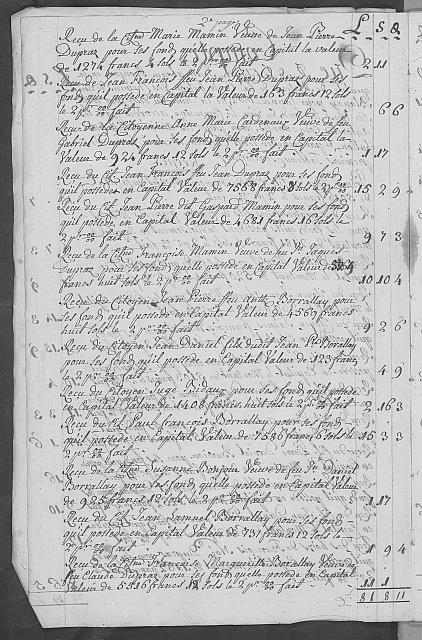 2e page
L S D
Reçu de la Cne Marie Mamin Veuve de Jean Pierre
Dupraz pour ses fond qu'elle possede en Capital la valeur
de 1274 francs 4 sols le 2 pr 00/00 fait 2 11
Reçu de Jean François feu Jean Pierre Dupraz pour ses
fond qu'il possede en Capital la Valeur de 163 francs 12 sols
le 2 pr 00/00 fait 6 6
Reçu de la Citoyenne Anne Marie Cardenaux Veuve de feu
Gabriel Dupraz pour ses fond qu'elle possede en Capital la
Valeur de 924 francs 12 sols le 2 pr 00/00 fait 1 17
Reçu du Cit Jean François feu Jean Dupraz pour ses fond
qu'il possede en Capital Valeur de 7568 francs 8 sols le 2 pr 15 2 9
Reçu du Cit Jean Pierre dit Gaspard Mamin pour ses fond
qu'il possede en Capital Valeur de 4681 francs 16 sols le
2 pr 00/00 fait 9 7 3
Reçu de la Cne Françoise Mamin Veuve de feu Sr Jaques
Dupraz pour ses fond qu'elle possede en Capital Valeur de
francs huit sols le 2 pr 00/00 fait 10 10 4
Reçu du Citoyen Jean Pierre feu Antne Borrallay pour
ses fond qu'il possede en Capital Valeur de 4569 francs
huit sols le 2 pr 00/00 fait 9 2 6
Reçu du Citoyen Jean Daniel fils dudit Jean Pre Borrallay
pour ses fond qu'il possede en Capital Valeur de 123 francs
le 2 pr 00/00 fait 4 9
Reçu du Citoyen Juge Bidaux pour ses fond qu'il possede
en Capital Valeur de 1406 francs huit sols le 2 pr 00/00 fait 2 16 3
Reçu du Cit Paul François Borrallay pour ses fond
qu'il possede en Capital Valeur de 7586 francs 6 sols le 15 3 3
2 pr 00/00 fait
Reçu de la Cne Susanne Bonjour Veuve de feu Sr Daniel
Borrallay pour ses fond qu'elle possede en Capital Valeur
de 925 francs 12 sols le 2 pr 00/00 fait 1 17
Reçu du Cit Jean Samuel Borrallay pour ses fond
qu'il possede en Capital Valeur de 731 francs 12 sols le
2 pr 00/00 fait 1 9 4
Reçu de la Cne Françoise Marguerite Borallay Veuve de
feu Claude Dupraz pour ses fond qu'elle possede en Capital
Valeur de 5516 francs 12 sols le 2 pr 00/00 fait 11 1
81 8 11